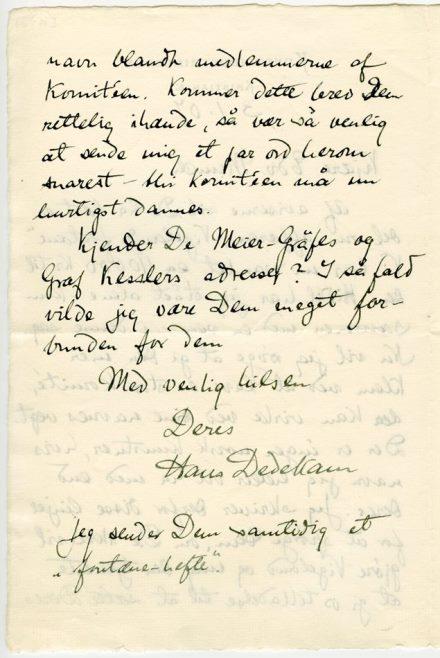 navn blandt medlemmerne af
Komitéen. Kommer dette brev Dem
rettelig ihænde, så vær så venlig
at sende mig et par ord herom
snarest – thi Komitéen må nu
hurtigst dannes.
Kjender De Meier-Gräfes og
Graf Kesslers adresser? I så fald
vilde jeg være Dem meget for-
bunden for dem
Med venlig hilsen
Deres
Hans Dedekam
Jeg sender Dem samtidig et
„fontæne-hefte”.